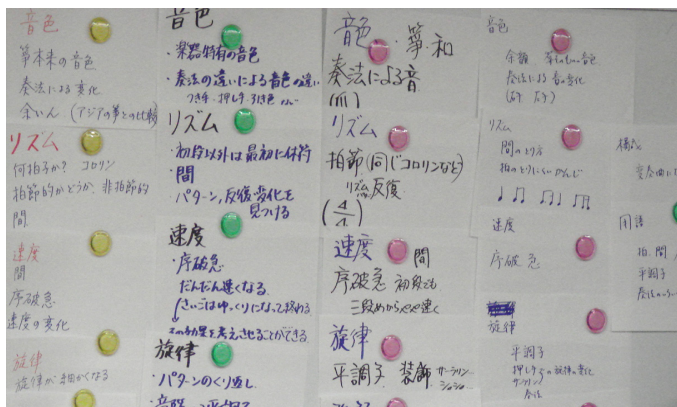 音色
箏本来の音色
奏法による変化
余いん (アジアの箏との比較
リズム
何拍子か? コロリン
拍節的かどうか、非拍節的
間
速度
間
序破急
速度の変化
旋律
旋律が細かくなる
音色
・楽器特有の音色
・奏法の違いによる音色の違い
つき手・押し手・引き色
リズム
・初段以外は最初に休符
・間
・パターン、反復、変化を
見つける
速度
・序破急
だんだん速くなる
さいごはゆっくりになって終わる
を考えさせることができる
旋律
・パターンのくり返し
音色・箏・和
奏法による音
(爪)
リズム
拍節(同じコロリンなど)
リズム反復
(4/4)
速度 間
序破急 初段でも
三段めからやや速く
旋律
平調子 装飾 サーラリン
シュッシュ
音色
余韻
奏法による音の変化
リズム
間のとり方
拍のとりにくいかんじ
速度
序破急
旋律
平調子
押し手 の旋律の変化
サーラリン
奏法
構成
変奏曲
用語
拍、間
平調子